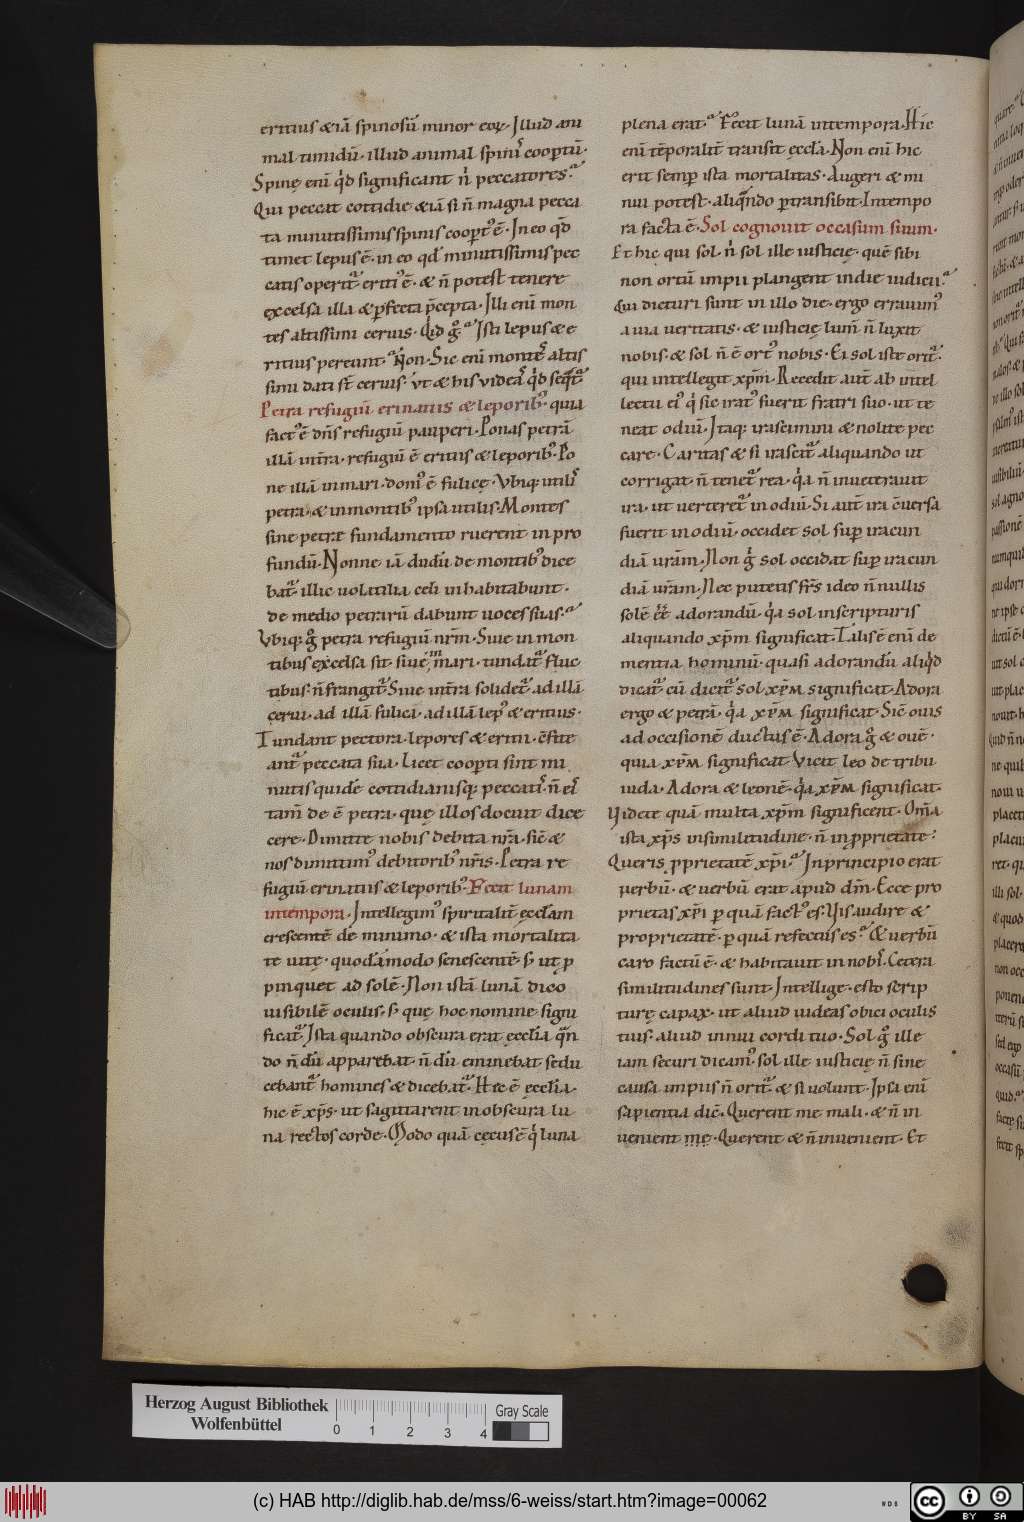 ericius &iā spinosū minor eoꝝ. Illud ani
mal timidū. illud animal spinis cooptū.
Spinę enī qd significant ñ peccatores?
Qui peccat cottidie &iā si ñ magna pecca
ta minutissimis spinis coopt᷒ ē. In eo qd
timet lepus ē. in eo qd minutissimis pec
catis operit᷑ eriti᷒ ē. & ñ potest tenere
excelsa illa & pfecta p̄cepta. Illi enī mon
tes altissimi ceruis. Qd g̊? Isti lepus & e
ritius pereunt? Non. Sic enī montes altis
simi dati st̄ ceruis. ut & his videas qd seqt᷑
Petra refugiū erinatiis & leporib᷒. quia
fact᷒ ē dñs refugiū pauperi. Ponas petrā
illā intra. refugiū ē eritiis & leporib᷒. Po
ne illā in mari. dom᷒ ē fulicę. Vbiq; utilis
petra. & in montib᷒ ipsa utilis. Montes
sine petrae fundamento ruerent in pro
fundū. Nonne iā dudū de montib᷒ dice
bat᷑ illic uolatilia celi inhabitabunt.
de medio petrarū dabunt uoces suas?
Vbiq; g̊ petra refugiū nr̄m. Siue in mon
tibus excelsa sit. siue in mari. tundat᷑ fluc
tibus. ñ frangit᷑. Siue intra solidet᷑. ad illā
cerui. ad illā fulica. ad illā lep᷒ & eritius.
Tundant pectora. lepores & eritii. c̄fite
ant᷑ peccata sua. Licet coopti sint mi
nutis quidē cottidianisq; peccatis. ñ eis
tam̄ de ē petra. quę illos docuit dice
cere. Dimitte nobis debita nr̄a. sic &
nos dimittim᷒ debitorib᷒ nr̄is. Petra re
fugiū erinatiis & leporib᷒. Fecit lunam
in tempora. Intellegim᷒ spiritalit̄ ęccl̄am
crescentē de minimo. & ista mortalita
te uitę. quodāmodo senescentē. s; ut p
pinquet ad solē. Non istā lunā dico
uisibilē oculis. s; quę hoc nomine signi
ficat᷑. Ista quando obscura erat ęccl̄ia qn̄
do ñ dū apparebat. ñ dū eminebat sedu
cebant᷑ homines & dicebat᷑. Hec ē ęccl̄ia.
hic ē xp̄s. ut sagittarent in obscura lu
na rectos corde. Modo quā cęcus ē qi luna
plena erat? Fecit lunā in tempora. Hic
enī tēporalit̄ transit ęccl̄a. Non enī hic
erit semp ista mortalitas. Augeri & mi
nui potest. aliqn̄do ptransibit. In tempo
ra facta ē. Sol cognouit occasum suum.
Et hic qui sol. ñ sol ille iusticię. quē sibi
non ortū impii plangent in die iudicii?
Qui dicturi sunt in illo die. ergo errauim᷒
a uia ueritatis. & iusticię lum̄ ñ luxit
nobis. & sol ñ ē ort᷒ nobis. Ei sol iste orit᷑.
qui intellegit xp̄m. Recedit aut̄ ab intel
lectu ei᷒ q sic irat᷒ fuerit fratri suo. ut te
neat odiū. Itaq; irascimini & nolite pec
care. Caritas & si irascit᷑ aliquando ut
corrigat. ñ tenet᷑ rea. qa ñ inueterauit
ira. ut uerteret᷑ in odiū. Si aut̄ ira c̄uersa
fuerit in odiū. occidet sol sup iracun
diā uram̄. Non g̊ sol occidat sup iracun
diā uram̄. Nec putetis frs̄ ideo ñ nullis
solē ee adorandū. qa sol in scripturis
aliquando xp̄m significat. Talis ē enī de
mentia hominū. quasi adorandū aliqd
dicat᷑ cū dicit᷑ sol xp̄m significat. Adora
ergo & petrā. qa xp̄m significat. Sic ouis
ad occisionē ductus ē. Adora g̊ & ouē.
quia xp̄m significat. Vicit leo de tribu
iuda. Adora & leonē. qa xp̄m significat.
Videte quā multa xp̄m significent. Om̄a
ista xp̄s in similitudine. ñ in pprietate.
Queris pprietatē xp̄i? In principio erat
uerbū. & uerbū erat apud dm̄. Ecce pro
prietas xp̄i p quā fact᷒ es. Vis audire &
proprietatē. p quā refectus es? & uerbū
caro factū ē. & habitauit in nobis. Cetera
similitudines sunt. Intellige. esto scrip
turę capax. ut aliud uideas obici oculis
tuis. aliud innui cordi tuo. Sol g̊ ille
iam securi dicam᷒. sol ille iusticię ñ sine
causa impiis ñ orit᷑. & si uolunt. Ipsa enī
sapientia dic̄. Querent me mali. & ñ in
uenient me. Querent & ñ inuenient. Et
Herzog August Bibliothek
Wolfenbüttel
0 1 2 3 4
Gray Scale
(c) HAB http://diglib.hab.de/mss/6-weiss/start.htm?image=00062
cc BY SA